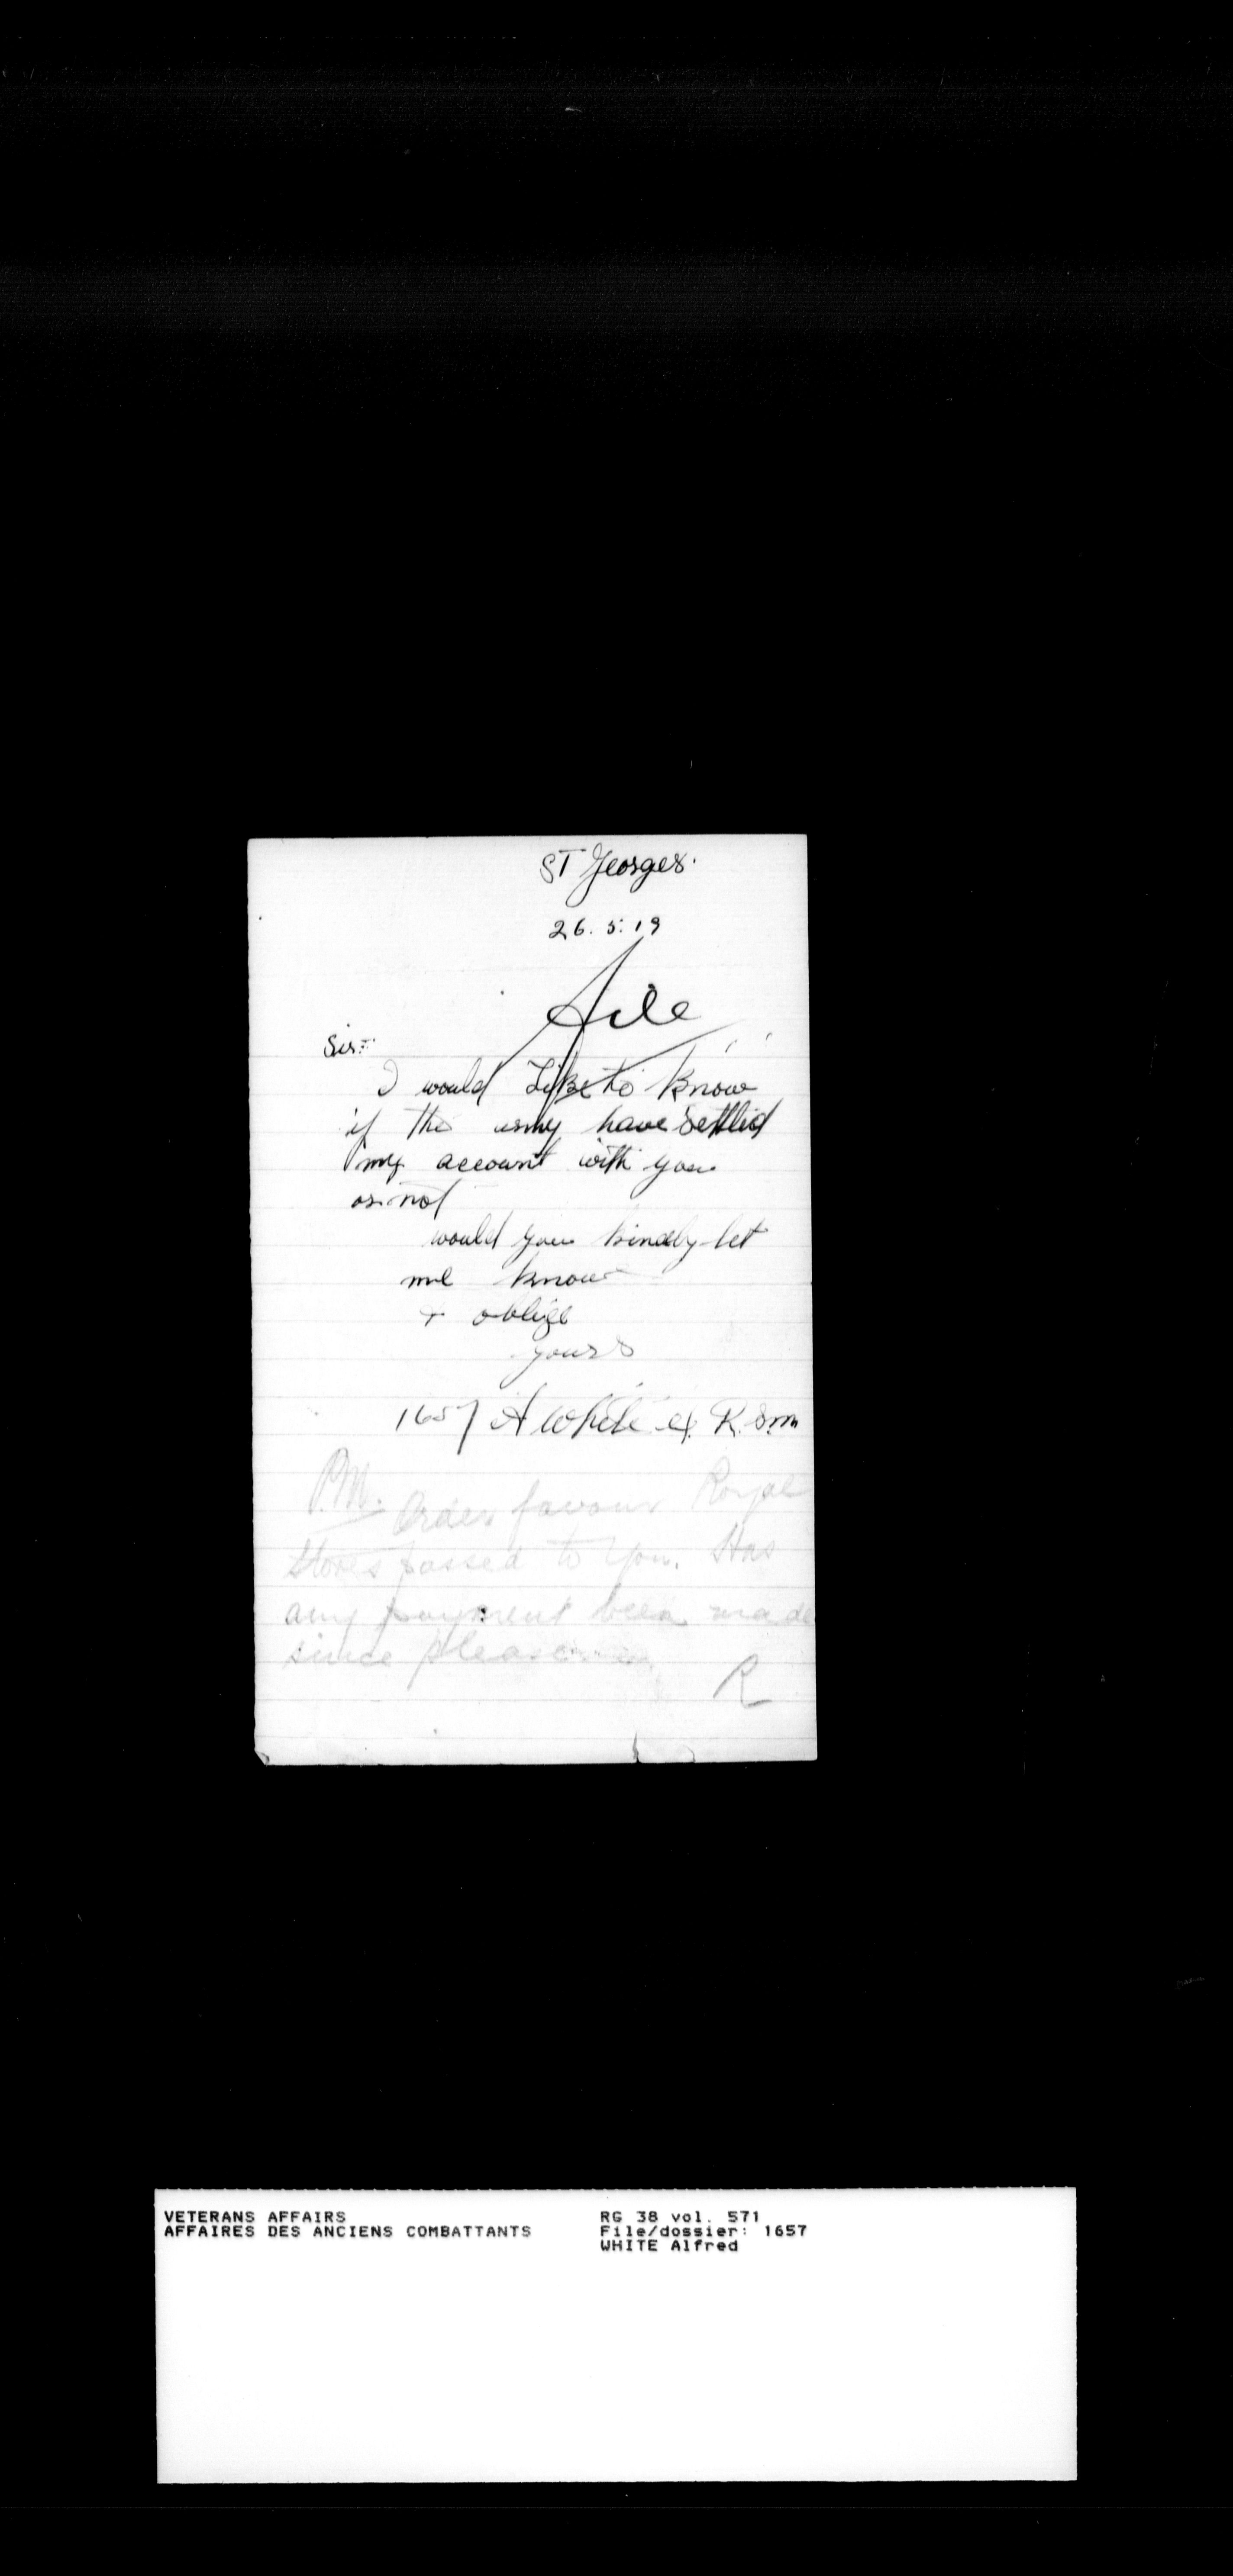 ST Georges.
26. 5. 19
File
Sir:-
I would Like to know
if the army have settled
my account with you
or not
would you kindly let
me know
+ oblige
yours
1657 A White ex. R.S.M
P.M. Order favour Royal
Stores passed to you. Has
any payment been made
since please
R
VETERANS AFFAIRS RG 38 vol. 571
AFFAIRES DES ANCIENS COMBATTANTS File/dossier: 1657
WHITE Alfred